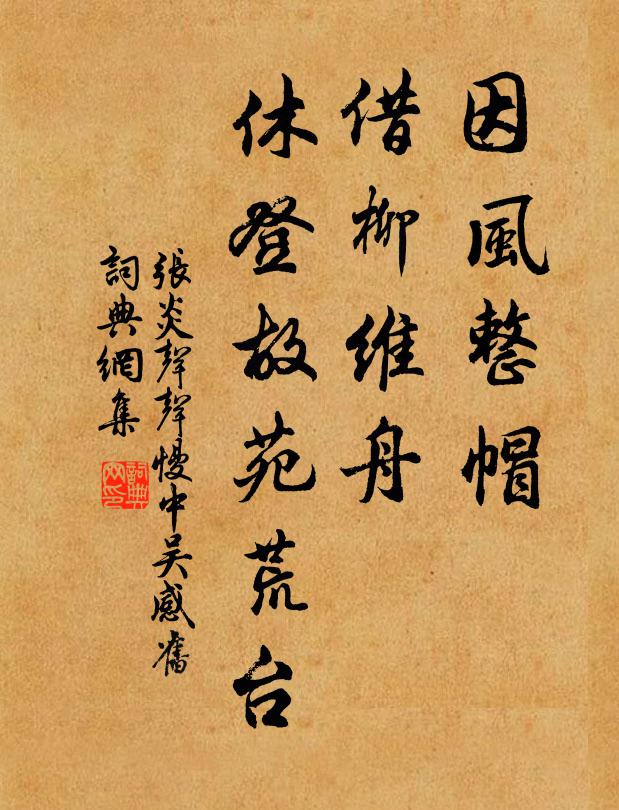 因風整帽
借柳維舟
休登故苑荒台
張炎聲聲慢中吴感舊
詞典網集
詞典
网印